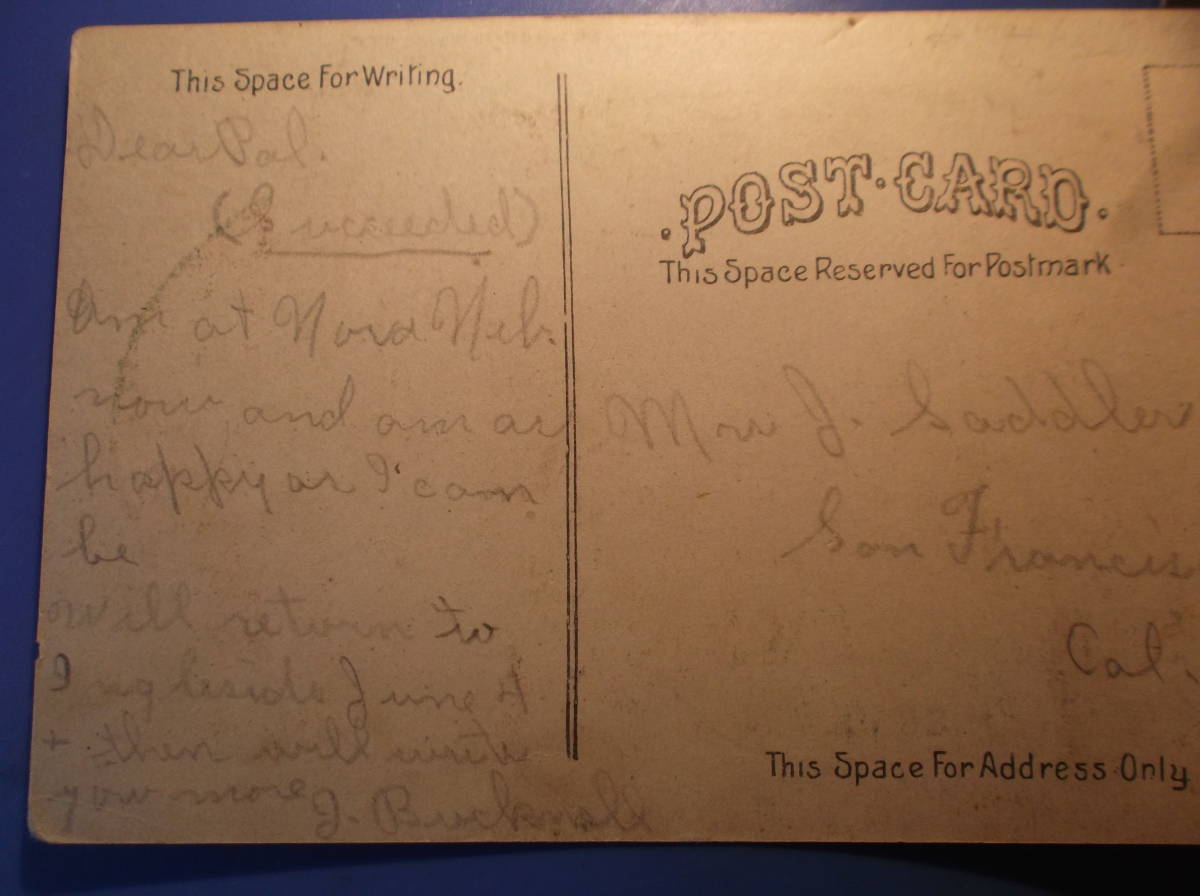 This Space For Writing.
Dear Pal.
(Succeeded)
Am at Nora Neb.
now and am as
happy as I can
be
Will return to
Ingleside June 4
+ then will write
you more
J. Bucknell
POST·CARD.
This Space Reserved For Postmark
J. Saddler
San Francis
Cal.
This Space For Address Only